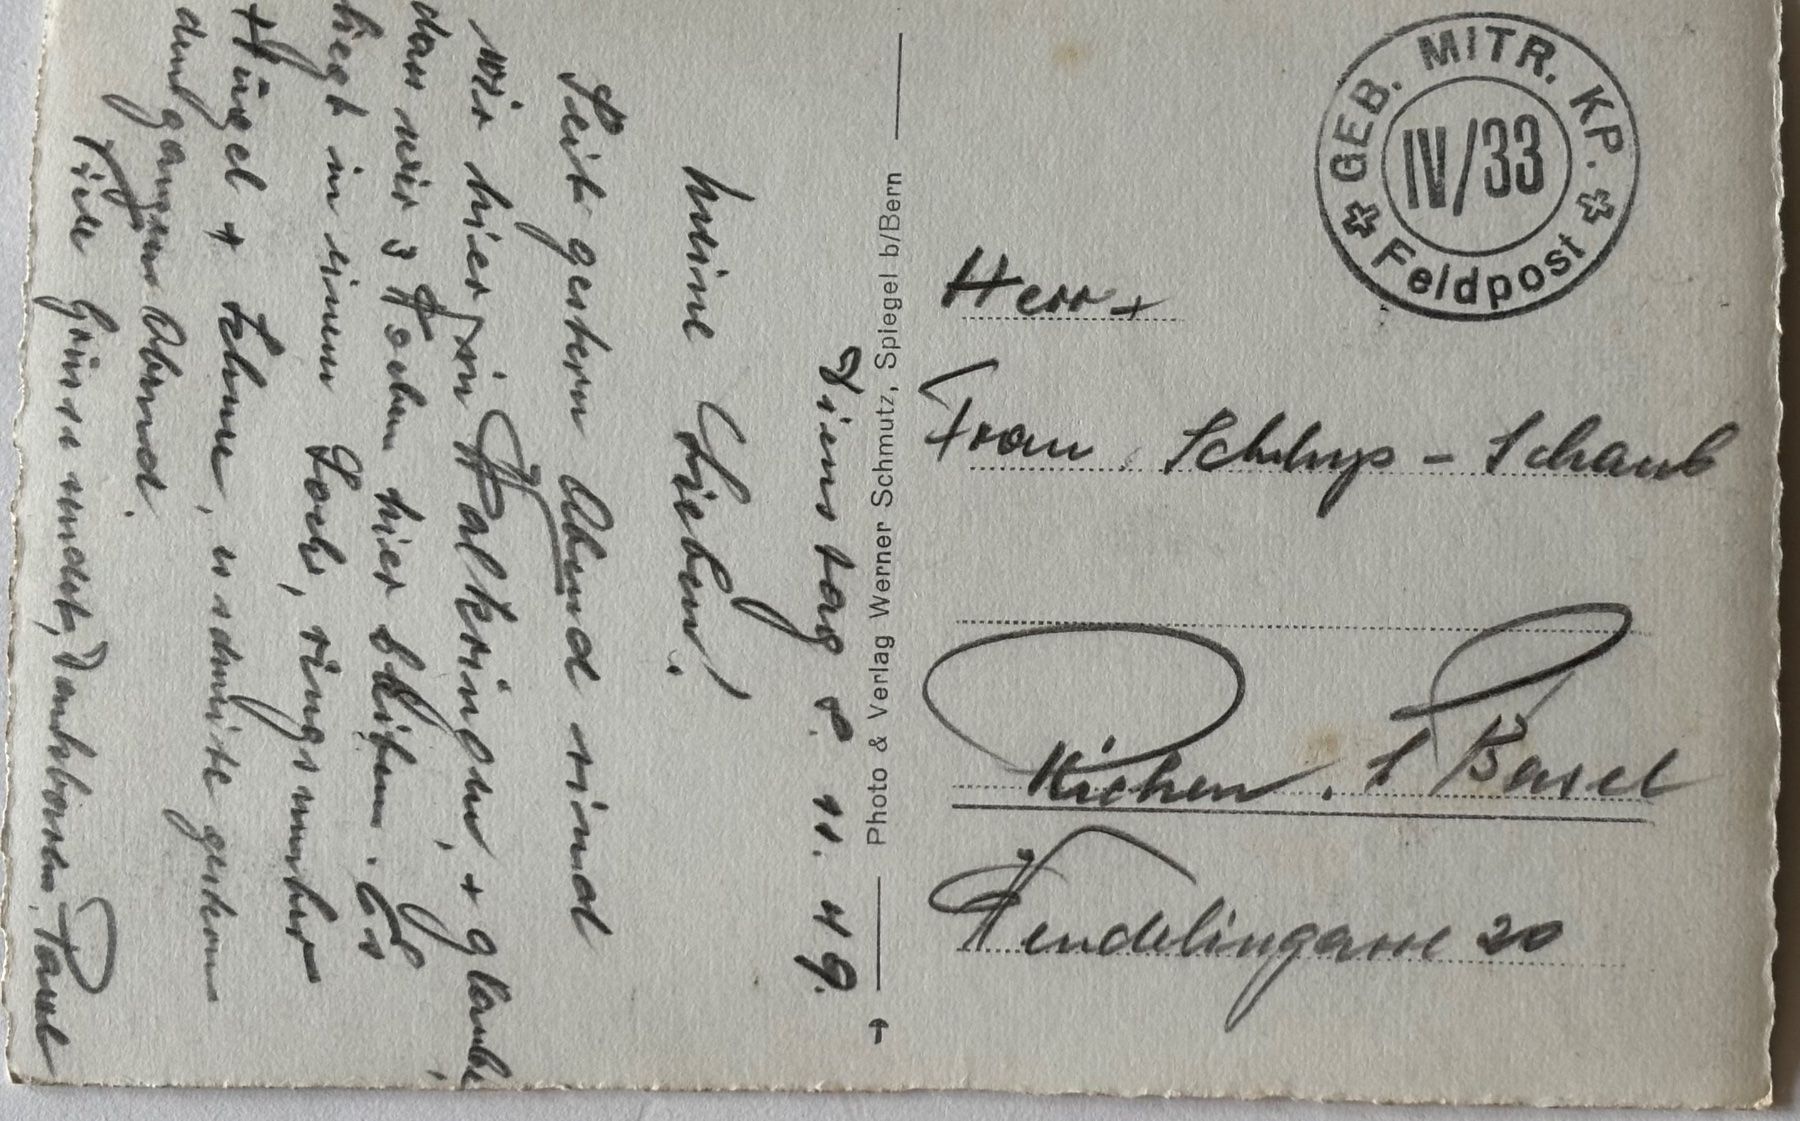 GEB. MITR. KP.
IV/33
Feldpost
Herr +
Frau - Schaub
Riehen. Basel
Wendelingasse 20
Photo & Verlag Werner Schmutz, Spiegel b/Bern
Dienstag 8. 11. 49.
Meine Lieben!
Seit gestern Abend sind
wir hier in Walkringen, + glaube
dass wir 3 Wochen hier bleiben. Es
liegt in einem Loch, ringsumher
Hügel + , es schneite gestern
den ganzen Abend.
Viele Grüsse sendet, Paul